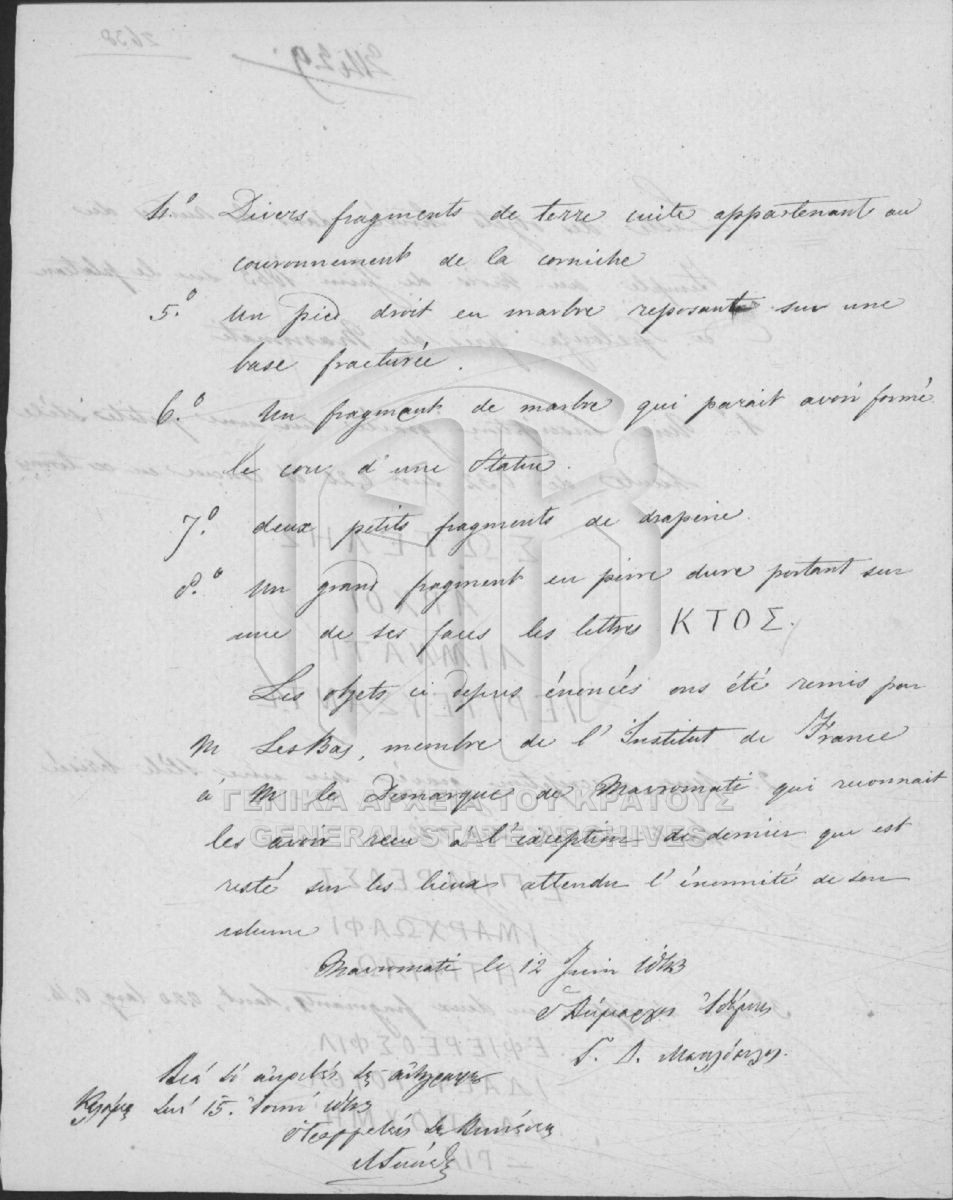 4.º Divers fragments de terre cuite appartenant au
couronnement de la corniche
5.º Un pied droit en marbre reposant sur une
base fracturée.
6.º Un fragment de marbre qui parait avoir formé
le cou d'une Statue.
7.º deux petits fragments de draperie.
8.º Un grand fragment en pierre dure portant sur
une de ses faces les lettres ΚΤΟΣ.
Les objets ci depus énoncés ons été remis par
M LesBas, membre de l'Institut de France
à M le Dimarque de Mavromati qui reconnait
les avoir recu à l'exception du dernier que est
resté sur les lieux attendu l'énormité de son
volume
Mavromati le 12 Juin 1843
Ὁ Δήμαρχος Ἰθώμης
15. 1843
ΓΕΝΙΚΑ ΑΡΧΕΙΑ ΤΟΥ ΚΡΑΤΟΥΣ
GENERAL STATE ARCHIVES